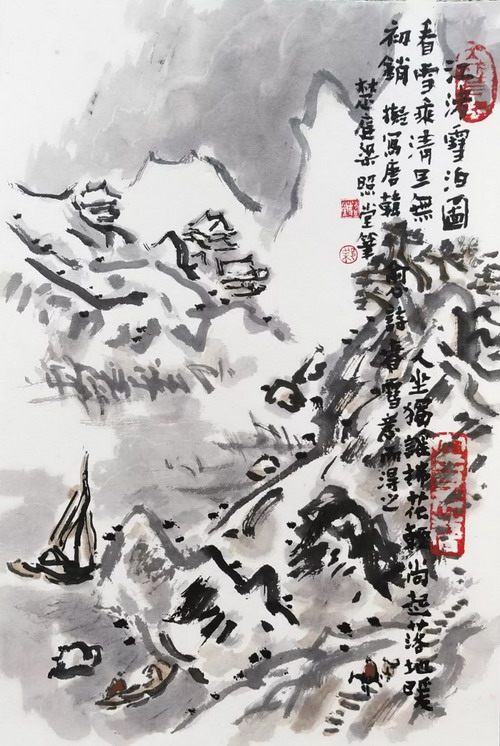 江雪泊圖
看雪乘清旦無人坐獨謠拂花輕尚起落地暖
初銷擬寫唐韓愈詩春雪意而得之
楚庭梁照堂筆